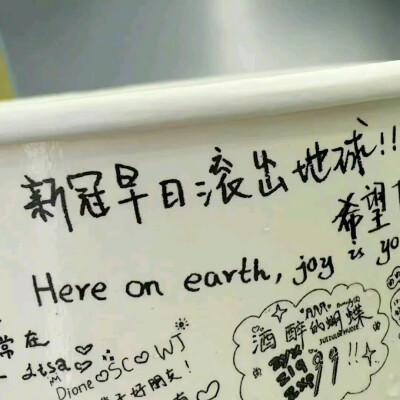 新冠早日滚出地球!!
希望
Here on earth, joy is yo
常在
Litsa♡
Dione♡SC♡WJ
好朋友!
酒醉的蝴蝶
99!!